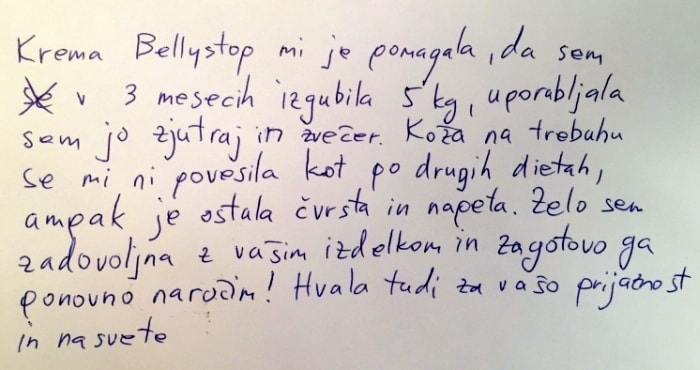 Krema Bellystop mi je pomagala, da sem
v 3 mesecih izgubila 5 kg, uporabljala
sem jo zjutraj in zvečer. Koža na trebuhu
se mi ni povesila kot po drugih dietah,
ampak je ostala čvrsta in napeta. Zelo sem
zadovoljna z vašim izdelkom in zagotovo ga
ponovno naročim! Hvala tudi za vašo prijaznost
in nasvete